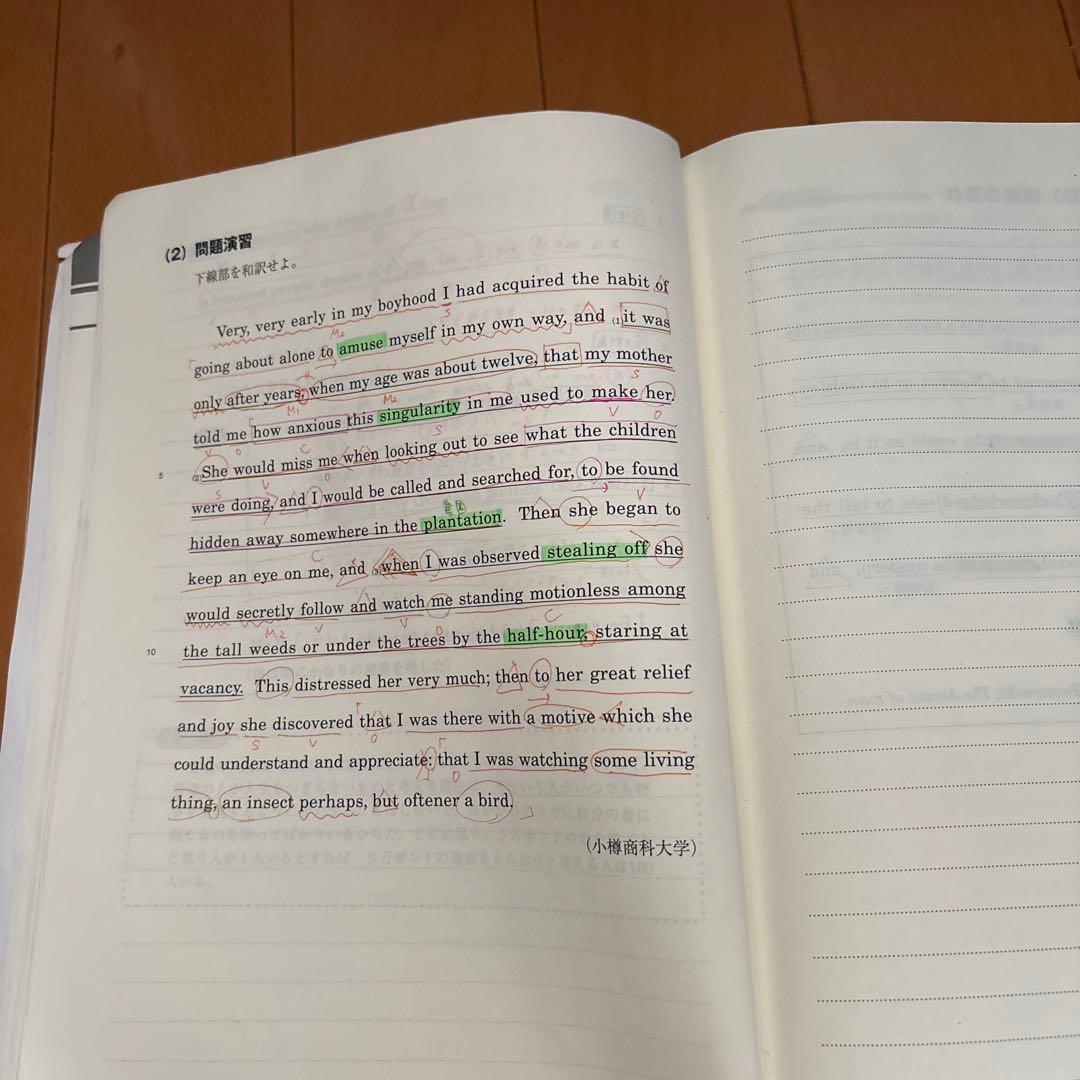 (2) 問題演習
下線部を和訳せよ。
Very, very early in my boyhood I had acquired the habit of
going about alone to amuse myself in my own way, and (1)it was
only after years, when my age was about twelve, that my mother
told me how anxious this singularity in me used to make her.
(2)She would miss me when looking out to see what the children
5
were doing, and I would be called and searched for, to be found
hidden away somewhere in the plantation. Then she began to
keep an eye on me, and (3)when I was observed stealing off she
would secretly follow and watch me standing motionless among
the tall weeds or under the trees by the half-hour, staring at
10
vacancy. This distressed her very much; then to her great relief
and joy she discovered that I was there with a motive which she
could understand and appreciate: that I was watching some living
thing, an insect perhaps, but oftener a bird.
(小樽商科大学)